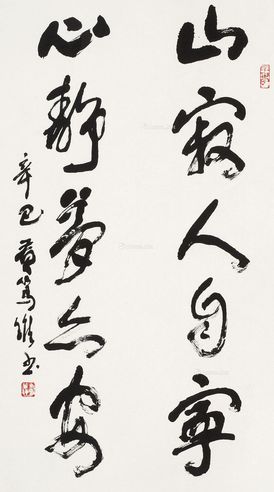 山寂人自寧
心静夢亦安
辛巳 篤維书